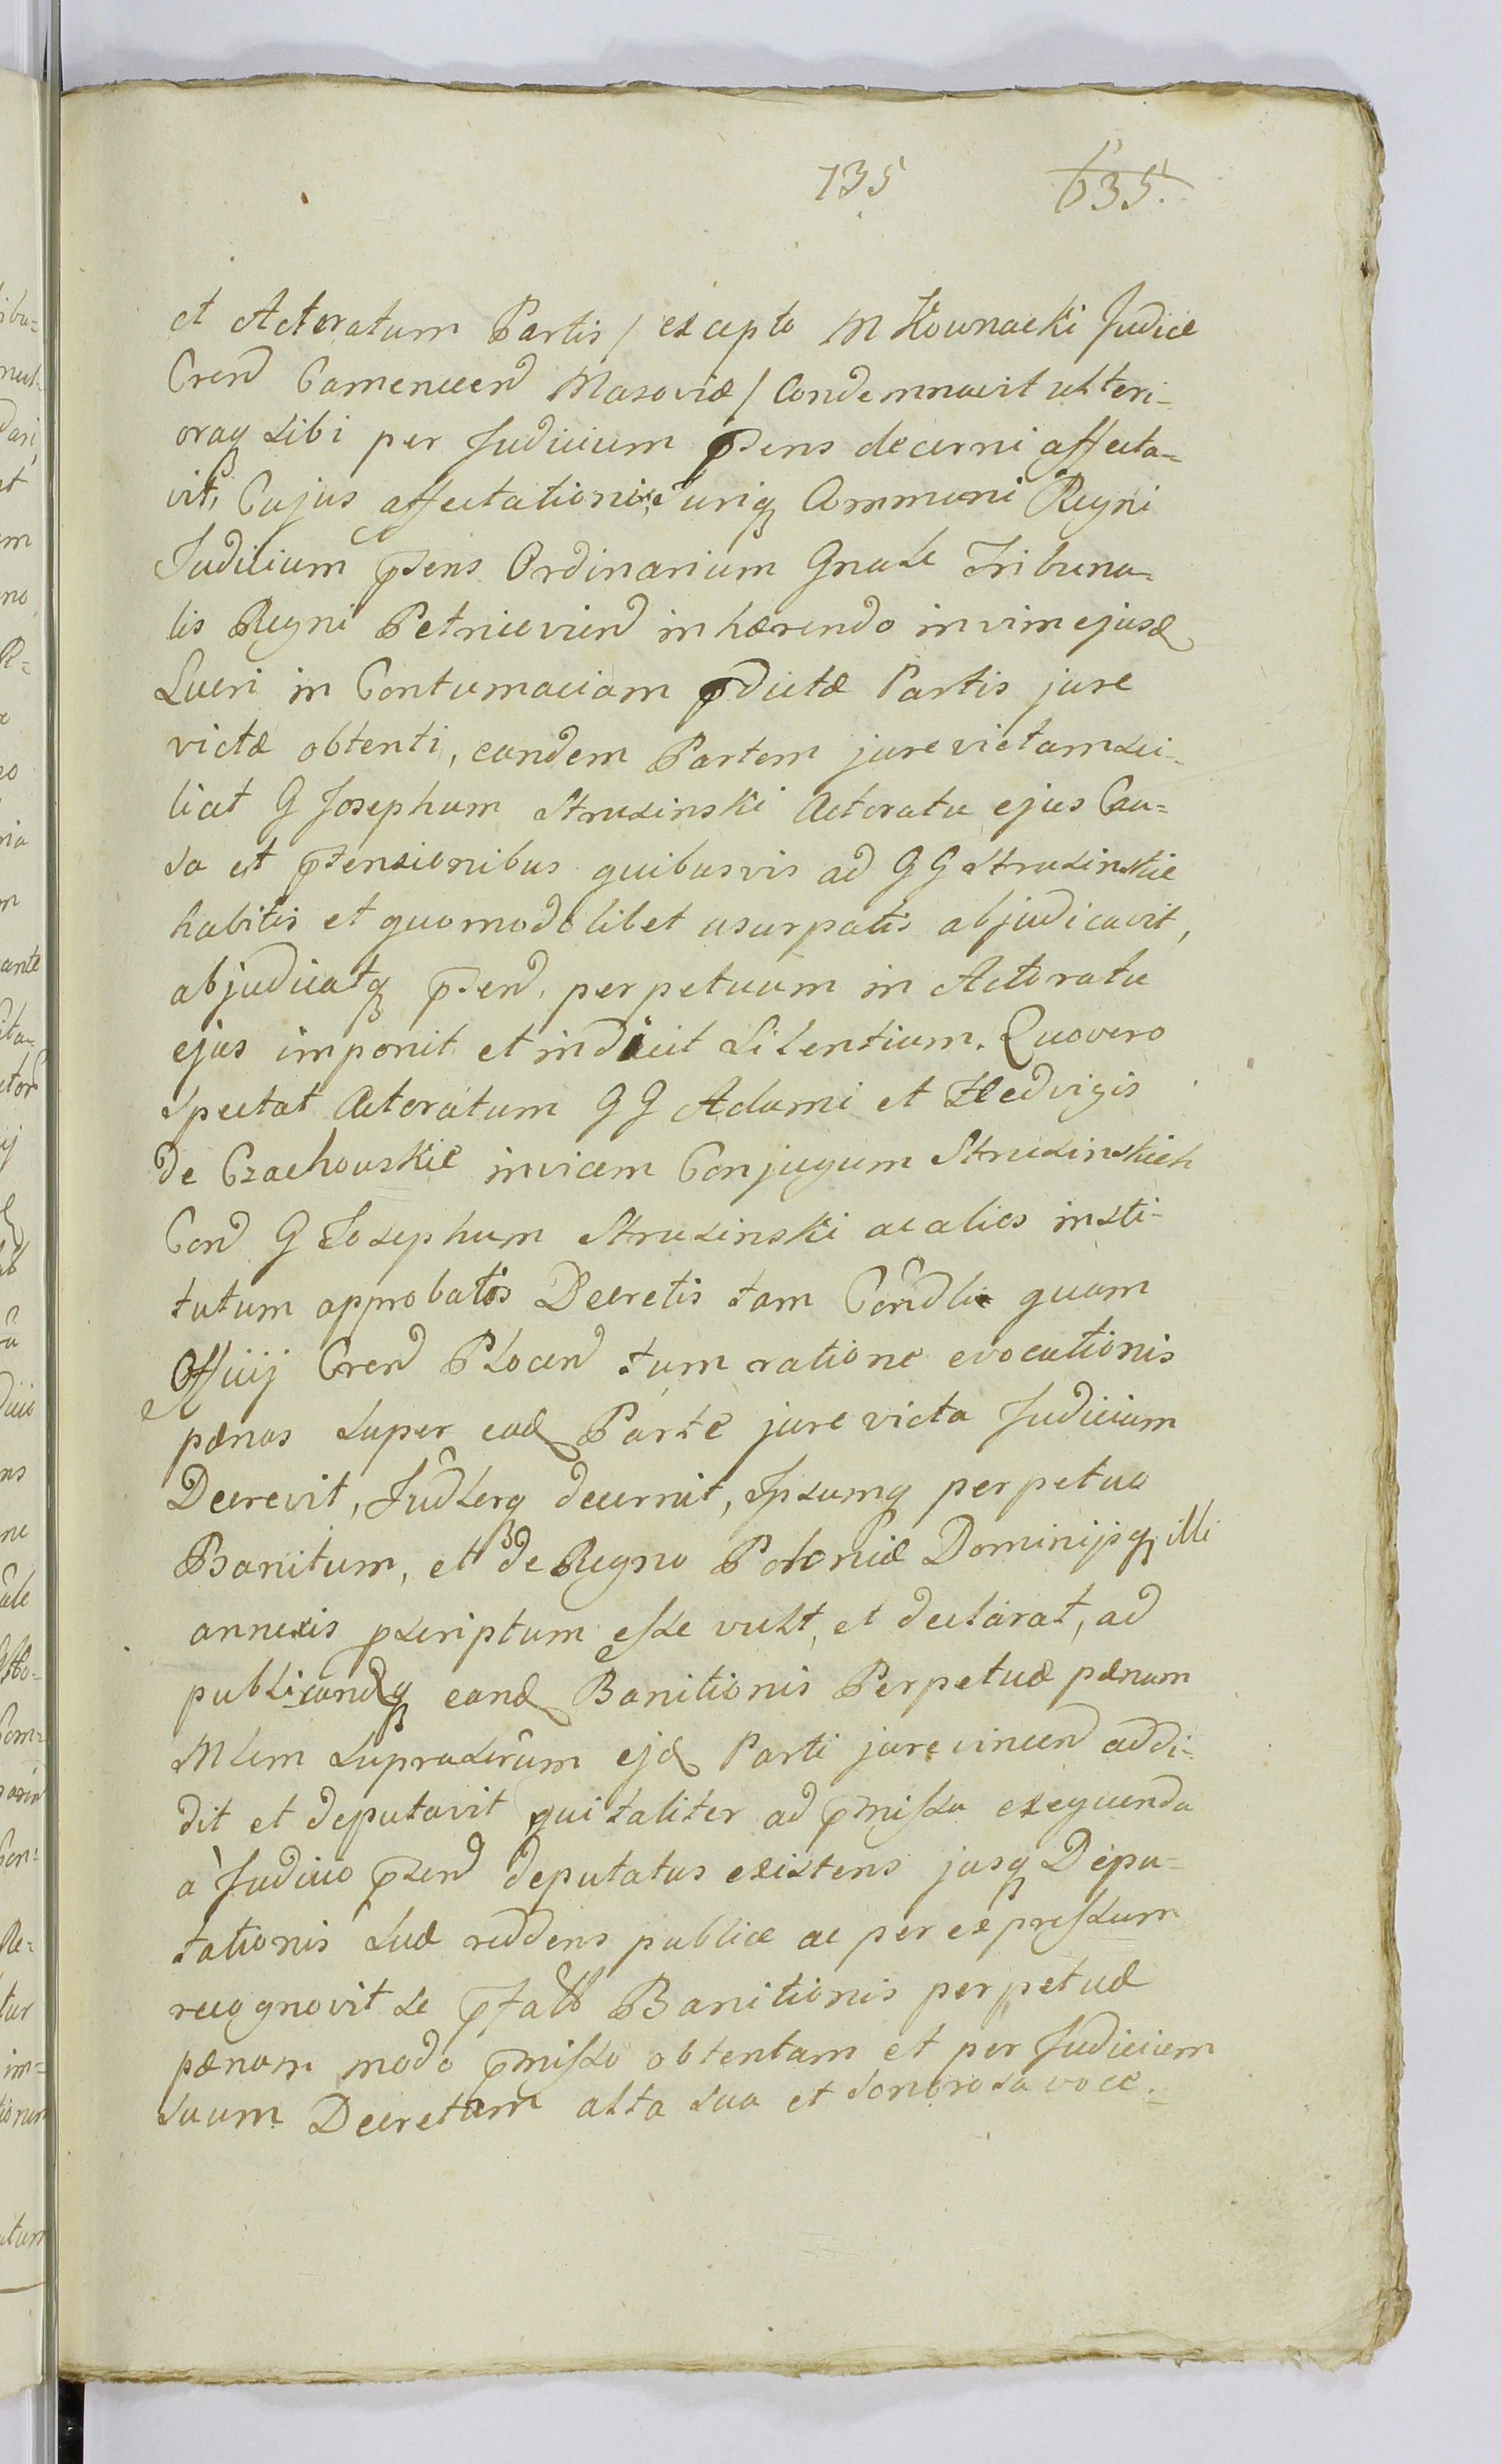 135 635.
et Actoratum Partis / excepto M Kownacki Judice
Cren̄ Camenecen̄ Masoviæ / Condemnavit ulteri-
oraq sibi per Judicium p̄sens decerni affecta-
vit, Cujus affectationi, Juriq Communi Regni
Judicium p̄sens Ordinarium Gnale Tribuna-
lis Regni Petricovien̄ inhærendo in vim ejusd
Lucri in Contumaciam p̄dictæ Partis jure
victæ obtenti, eandem Partem jure victam sci-
licet G Josephum Struzinski Actoratu ejus Cau-
sa et p̄tensionibus quibusvis ad G G Struzinskie
habitis et quomodolibet usurpatis abjudicavit,
abjudicatq p̄sen̄, perpetuum in Actoratu
ejus imponit et indicit Silentium. Quo vero
Spectat Actoratum G G Adami et Hedvigis
de Czachowskie invicem Conjugum Struzinskich
Con̄ G Josephum Struzinski ac alios insti-
tutum approbatis Decretis tam quam
Officij Cren̄ Plocen̄ tum ratione evocationis
pænas super ead Parte jure victa Judicium
Decrevit, decernit, Ipsumq perpetuo
Banitum, et de Regno Poloniæ Dominijsq illi
annexis pscriptum esse vult, et declarat, ad
publicandq eand Banitionis Perpetuæ pænam
Mlem suprascrūm ejd Parti jure vincen̄ addi-
dit et deputavit qui taliter ad p̄missa exequenda
à Judicio p̄sen̄ deputatus existens jusq Depu-
tationis suæ reddens publice ac per expressum
recognovit se p̄fatā Banitionis perpetuæ
pænam modo p̄misso obtentam et per Judicium
suum Decretam alta sua et sonorosa voce.-